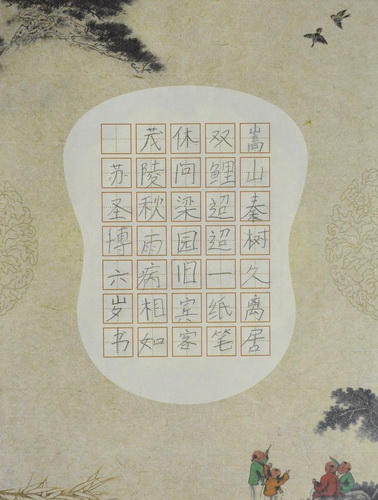 嵩山秦树久离居
双鲤迢迢一纸笔
休问梁园旧宾客
茂陵秋雨病相如
苏圣博六岁书